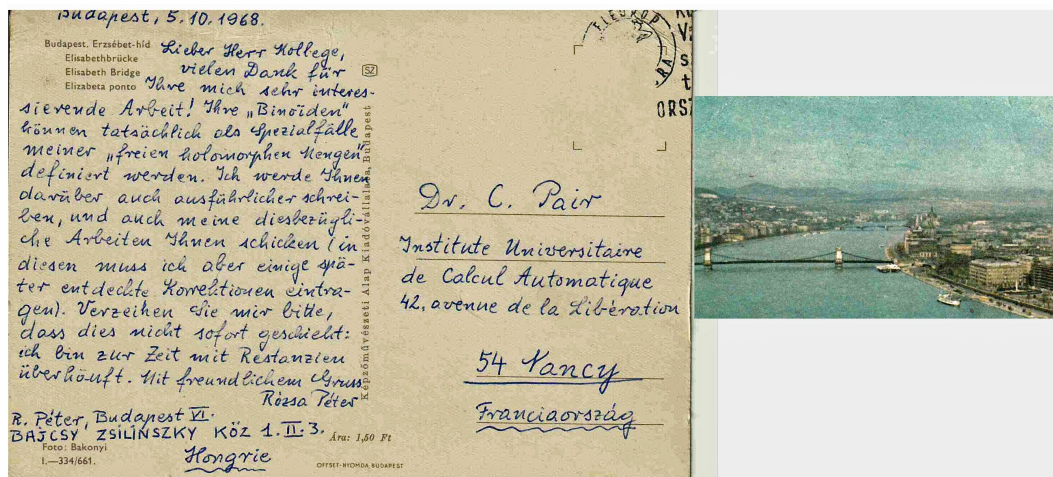 Budapest, 5.10.1968.
Budapest. Erzsébet-híd
Elisabethbrücke
Elisabeth Bridge
Elizabeta ponto
Lieber Herr Kollege,
vielen Dank für
Ihre mich sehr interes-
sierende Arbeit! Ihre „Binoïden"
können tatsächlich als Spezialfälle
meiner „freien holomorphen Mengen"
definiert werden. Ich werde Ihnen
darüber auch ausführlicher schrei-
ben, und auch meine diesbezügli-
che Arbeiten Ihnen schicken (in
diesen muss ich aber einige spä-
ter entdeckte Korrektionen eintra-
gen). Verzeihen Sie mir bitte,
dass dies nicht sofort geschieht:
ich bin zur Zeit mit Restanzien
überhäuft. Mit freundlichem Gruss
Rózsa Péter
R. Péter, Budapest VI.
BAJCSY ZSILINSZKY KÖZ 1. II. 3.
Hongrie
Foto: Bakonyi
I.—334/661.
Ára: 1,50 Ft
OFFSET-NYOMDA BUDAPEST
SZ
Képzőművészeti Alap Kiadóvállalata, Budapest
Dr. C. Pair
Institute Universitaire
de Calcul Automatique
42, avenue de la Libération
54 Nancy
Franciaország
ORSZ